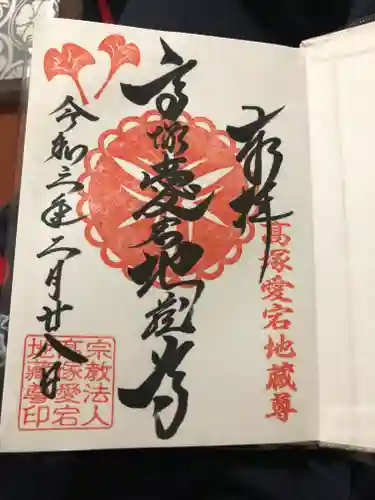 奉拝
髙塚愛宕地蔵尊
高塚愛宕地蔵尊
令和三年二月廿八日
宗教法人
高塚愛宕
地蔵尊印